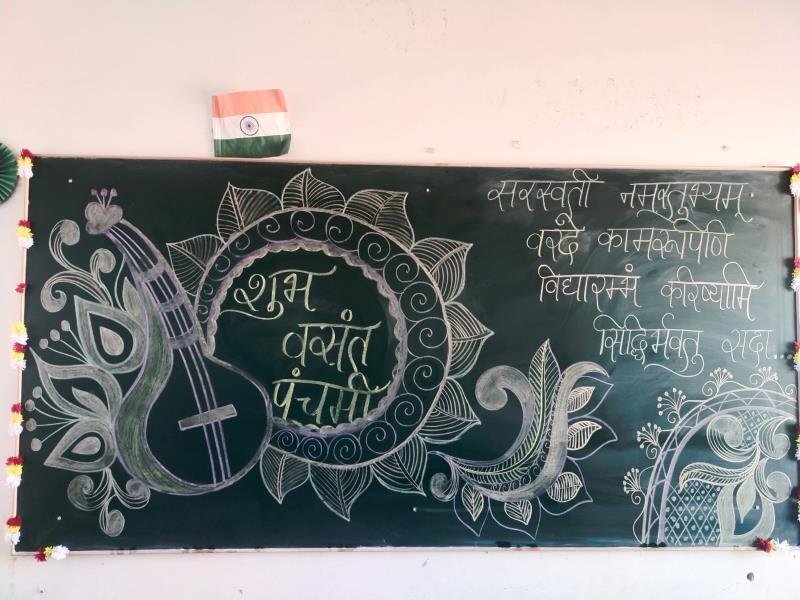 शुभ
वसंत
पंचमी
सरस्वती नमस्तुभ्यम्.
वरदे कामरूपिणि
विद्यारम्भं करिष्यामि
सिद्धिर्भवतु सदा...